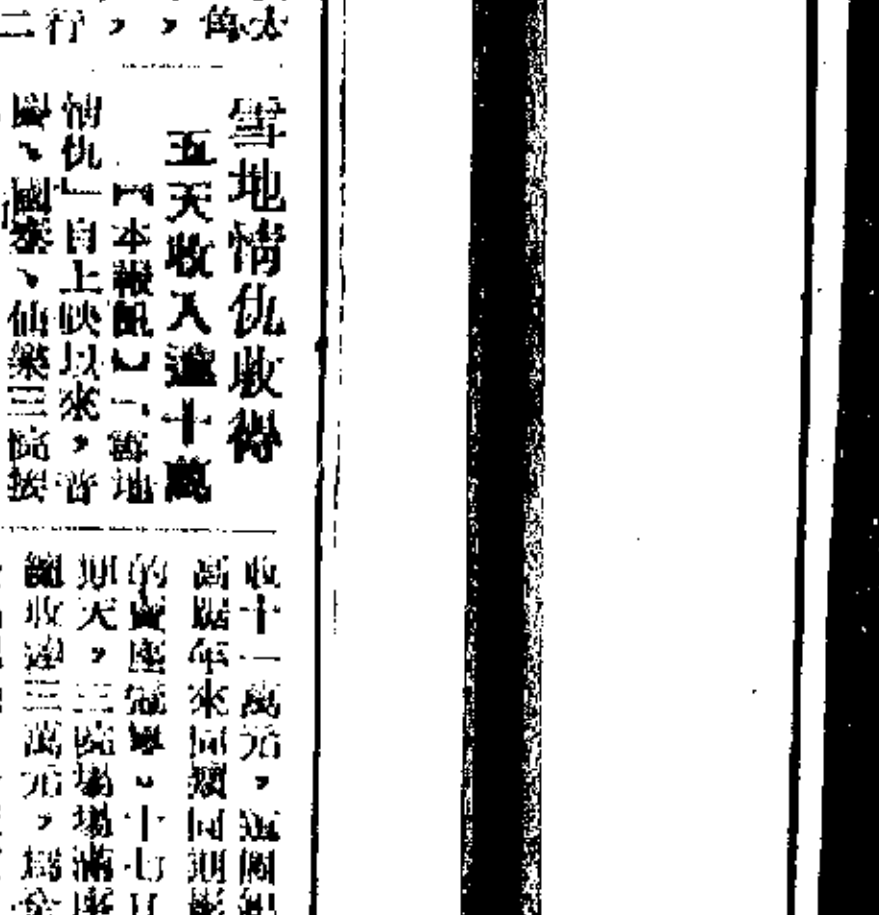 大
萬
，
，
行
二
雪地情仇收得
五天收入達十萬
【本報訊】「雪地
情仇」自上映以來，普
慶、國泰、仙樂三院接
收十一萬元，這個紀
高踞年來同類同期影
的賣座冠軍。十七日
期天，三院場場滿座
總收達三萬元，為全